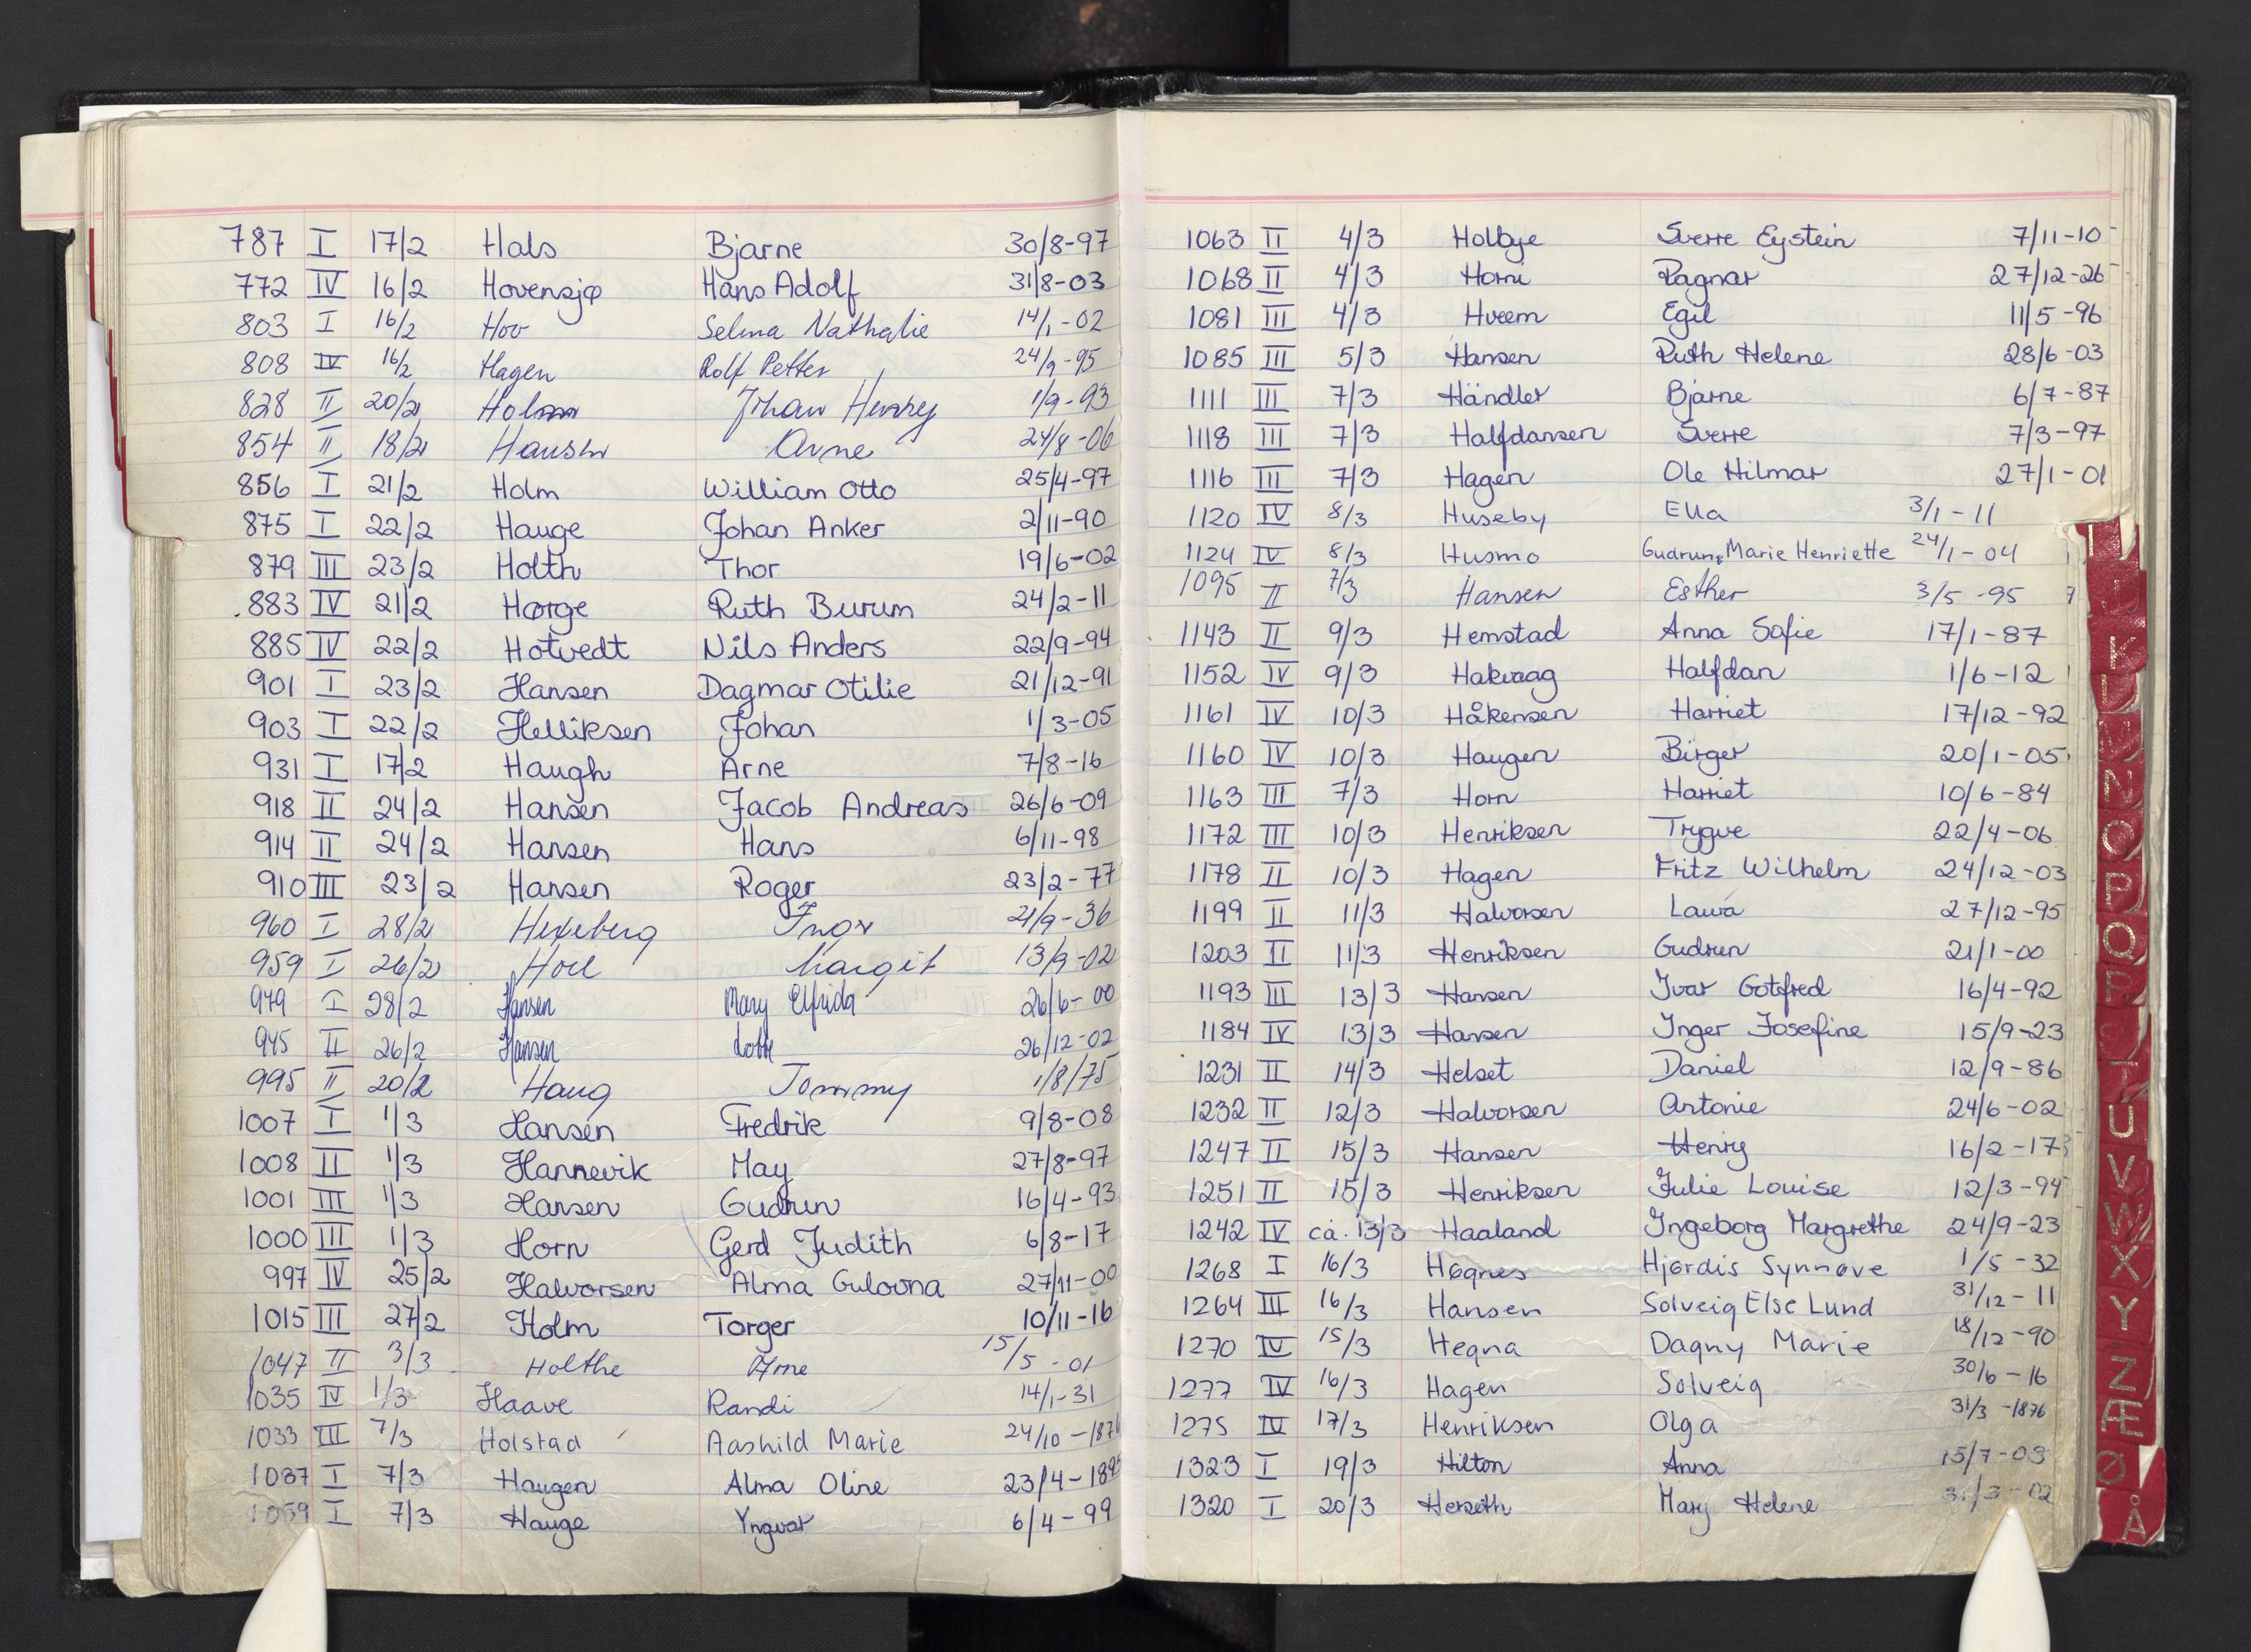 787 I 17/2 Hals Bjarne 30/8-97
772 IV 16/2 Hovensjø Hans Adolf 31/8-03
803 I 16/2 Hov Selma Nathalie 14/1-02
808 IV 16/2 Hagen Rolf Petter 24/9-95
828 II 20/2 Holmen Johan Henry 1/9-93
854 II 18/2 Hansen Arne 24/8-06
856 I 21/2 Holm William Otto 25/4-97
875 I 22/2 Hauge Johan Anker 2/11-90
879 III 23/2 Holth Thor 19/6-02
883 IV 21/2 Hørge Ruth Burum 24/2-11
885 IV 22/2 Hotvedt Nils Anders 22/9-94
901 I 23/2 Hansen Dagmar Otilie 21/12-91
903 I 22/2 Helliksen Johan 1/3-05
931 I 17/2 Haugh Arne 7/8-16
918 II 24/2 Hansen Jacob Andreas 26/6-09
914 II 24/2 Hansen Hans 6/11-98
910 III 23/2 Hansen Roger 23/2-77
960 I 28/2 Inger 21/9-36
959 I 26/2 Hoel Margit 13/9-02
949 I 28/2 Hansen Mary Elfrida 26/6-00
945 II 26/2 Hansen Lotte 26/12-02
995 II 20/2 Haug Tommy 1/8/75
1007 I 1/3 Hansen Fredrik 9/8-08
1008 II 1/3 Hannevik May 27/8-97
1001 III 1/3 Hansen Gudrun 16/4-93
1000 III 1/3 Horn Gerd Judith 6/8-17
997 IV 25/2 Halvorsen Alma Gulovna 27/11-00
1015 III 27/2 Holm Torger 10/11-16
1047 II 3/3 Holthe Arne 15/5-01
1035 IV 1/3 Haave Randi 14/1-31
1033 III 7/3 Holstad Aashild Marie 24/10-1876
1037 I 7/3 Haugen Alma Oline 23/4-1895
1059 I 7/3 Hauge Yngvar 6/4-99
1063 II 4/3 Holbye Sverre Eystein 7/11-10
1068 II 4/3 Horni Ragnar 27/12-26
1081 III 4/3 Hveem Egil 11/5-96
1085 III 5/3 Hansen Ruth Helene 28/6-03
1111 III 7/3 Händler Bjarne 6/7-87
1118 III 7/3 Halfdansen Sverre 7/3-97
1116 III 7/3 Hagen Ole Hilmar 27/1-01
1120 IV 8/3 Huseby Ella 3/1-11
1124 IV 8/3 Husmo Gudrun Marie Henriette 24/1-04
1095 II 7/3 Hansen Esther 3/5-95
1143 II 9/3 Hemstad Anna Sofie 17/1-87
1152 IV 9/3 Hakvaag Halfdan 1/6-12
1161 IV 10/3 Håkensen Harriet 17/12-92
1160 IV 10/3 Haugen Birger 20/1-05
1163 III 7/3 Horn Harriet 10/6-84
1172 III 10/3 Henriksen Trygve 22/4-06
1178 II 10/3 Hagen Fritz Wilhelm 24/12-03
1199 II 11/3 Halvorsen Laura 27/12-95
1203 II 11/3 Henriksen Gudrun 21/1-00
1193 III 13/3 Hansen Ivar Gotfred 16/4-92
1184 IV 13/3 Hansen Inger Josefine 15/9-23
1231 II 14/3 Helset Daniel 12/9-86
1232 II 12/3 Halvorsen Antonie 24/6-02
1247 II 15/3 Hansen Henry 16/2-17
1251 II 15/3 Henriksen Julie Louise 12/3-94
1242 IV ca. 13/3 Haaland Ingeborg Margrethe 24/9-23
1268 I 16/3 Høgnes Hjørdis Synnøve 1/5-32
1264 III 16/3 Hansen Solveig Else Lund 31/12-11
1270 IV 15/3 Hegna Dagny Marie 18/12-90
1277 IV 16/3 Hagen Solveig 30/6-16
1275 IV 17/3 Henriksen Olga 31/3-1876
1323 I 19/3 Hilton Anna 15/7-03
1320 I 20/3 Herseth Mary Helene 31/3-02
I
J
K
L
M
N
O
P
Q
R
S
T
U
V
W
X
Y
Z
Æ
Ø
Å